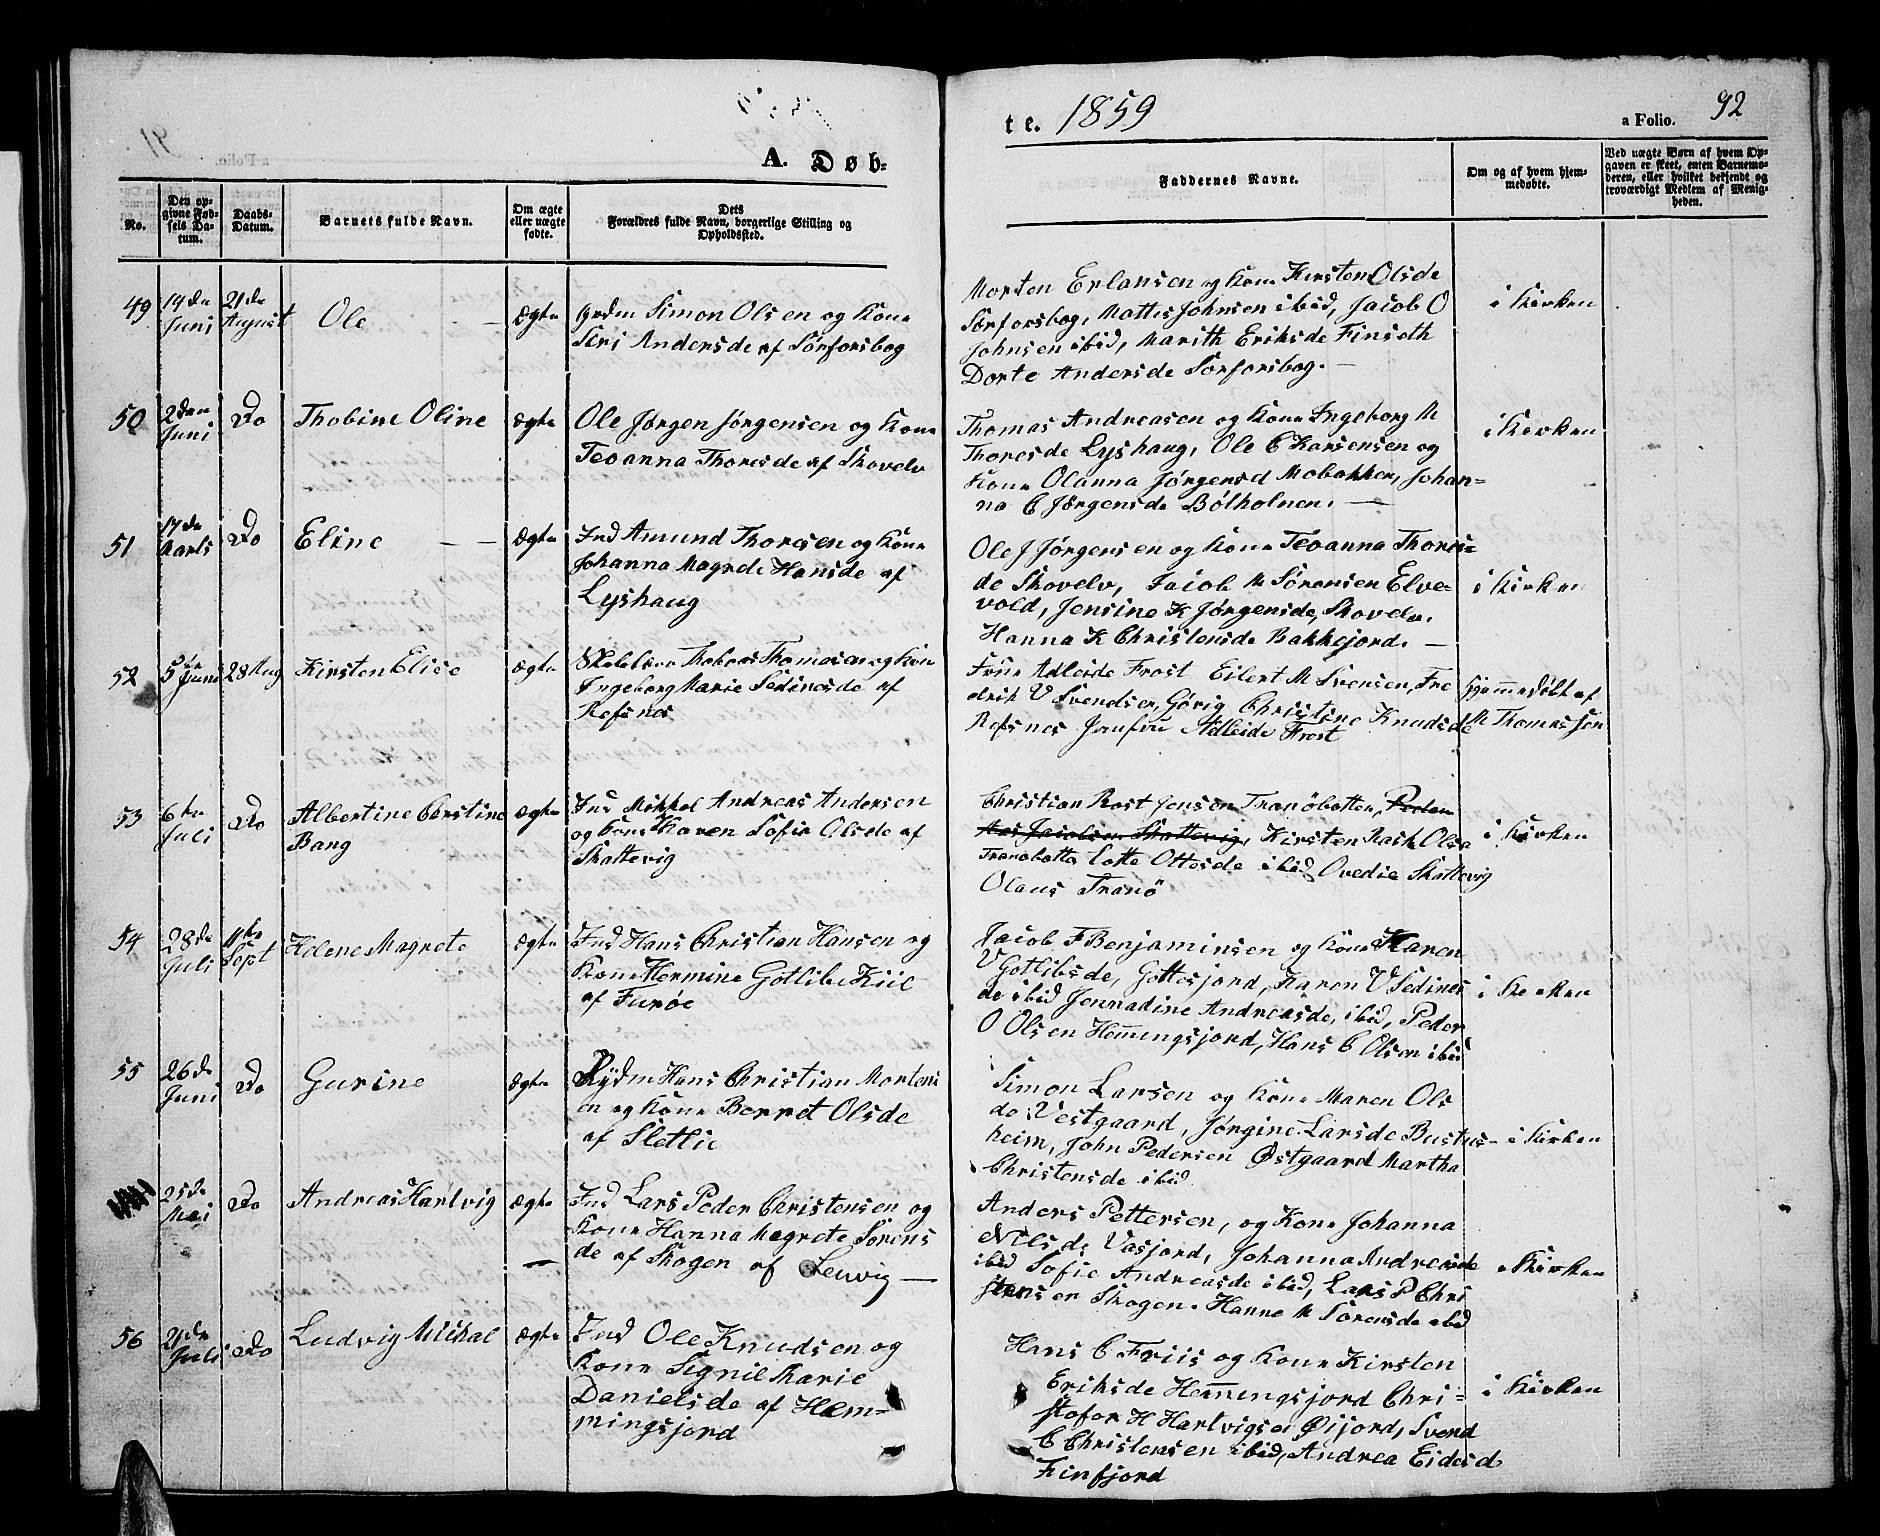 1859
a Folio. 92
A. Døb-
te.
No.
Den op-
givne Fød-
sels Da-
tum.
Daabs-
Datum.
Barnets fulde Navn.
Om ægte
eller uægte
fødte.
Dets
Forældres fulde Navn, borgerlige Stilling og
Opholdssted.
Faddernes Navne.
Om og af hvem hjem-
medøbte.
Ved uægte Børn af hvem Op-
gaven er skeet, enten Barnemo-
deren, eller hvilket bekjendt og
troværdigt Medlem af Menig-
heden.
49
14de
Juni
21de
August
Ole
ægte
Simon Olsen og Kone
Siri Andersde af Sørforsbog
Morten Erlansen og Kone Kersten Olsde
Sørforsbog, Mattis Johnsen ibid, Jacob O
Johnsen ibid, Marith Eriksde Finseth
Dorte Andersde Sørforsbog. —
i Kirken
50
2den
Juni
Do
Thobine Oline
ægte
Ole Jørgen Jørgensen og Kone
Teoanna Thoresde af Skovelv
Thomas Andreasen og Kone Ingeborg M
Thoresde Lyshaug, Ole C Karsensen og
Kone Olanna Jørgensd Mobakken, Johan-
na C Jørgensde Bølholmen. —
i Kirken
51
17de
Marts
Do
Eline
ægte
Ind Amund Thoresen og Kone
Johanna Magrde Hansde af
Lyshaug
Ole J Jørgensen og Kone Teoanna Thores-
de Skovelv, Jacob M Sørensen Elve-
vold, Jensine K Jørgensde, Skovelv.
Hanna K Christensde Bakkejord. —
i Kirken
52
5te
Juni
28 Aug
Kirsten Elise
ægte
Skolelærer Tobias Thomasen og Kone
Ingeborg Marie Sedinesde af
Refsnes
Frue Adleide Frost Eilert M Svensen, Fre
drik V Svendsen, Gørig Christine Knudsde
Refsnes Jomfru Adleide Frost
Hjemmedøbt af
M Thomassen
53
6te
Juli
Do
Albertine Cerstine
Bang
ægte
Ind Mikkel Andreas Andersen
og Kone Karen Sofie Olsde af
Skattevig
Christian Rost Jenson Tranøbotten, Peder
Jacobsen Skattevig, Kirsten Rask Olsa
Tranøbotten Lotte Ottesde ibid Ovedie Skattevig
Olaus Tranø
i Kirken
54
28de
Juli
11te
Sept
Helene Magrete
ægte
Ind Hans Christian Hansen og
Kone Hermine Gotlibe Kiil
af Furøe
Jacob F Benjaminsen og Kone Karen
V Gotlibsde, Gottesjord, Karen V Sedines
de ibid Jennadine Andreasde, ibid, Peder
O Olsen Hemingsjord, Hans C Olsen ibid
i Kirken
55
26de
Juni
Do
Gurine
ægte
Rydm Hans Christian Mortens
en og Kone Berret Olsde
af Sletlie
Simon Larsen og Kone Maren Ols
de Vestgaard, Jørgine Larsde Bustus-
heim, John Pedersen Østgaard Martha
Christensde ibid
i Kirken
25de
Mai
Do
Andreas Hartvig
ægte
Ind Lars Peder Christensen og
Kone Hanna Magrete Sørens
de af Skogen af Leuvig —
Anders Pettersen, og Kone Johanna
Nilsde Vasjord, Johanna Andreasde
ibid Sofie Andreasde ibid, Lars P Chri
stensen Skogen. Hanne M Sørensde ibid
i Kirken
56
21de
Juli
Do
Ludvig Mikal
ægte
Ind Ole Knudsen og
Kone Signil Marie
Danielsde af Hem-
mingsjord
Hans C Friis og Kone Kirsten
Eriksde Hemmingsjord Chri-
stofer H Hartvigsen Øijord, Svend
C Christensen ibid, Andrea Eidesd
Finfjord
i Kirken